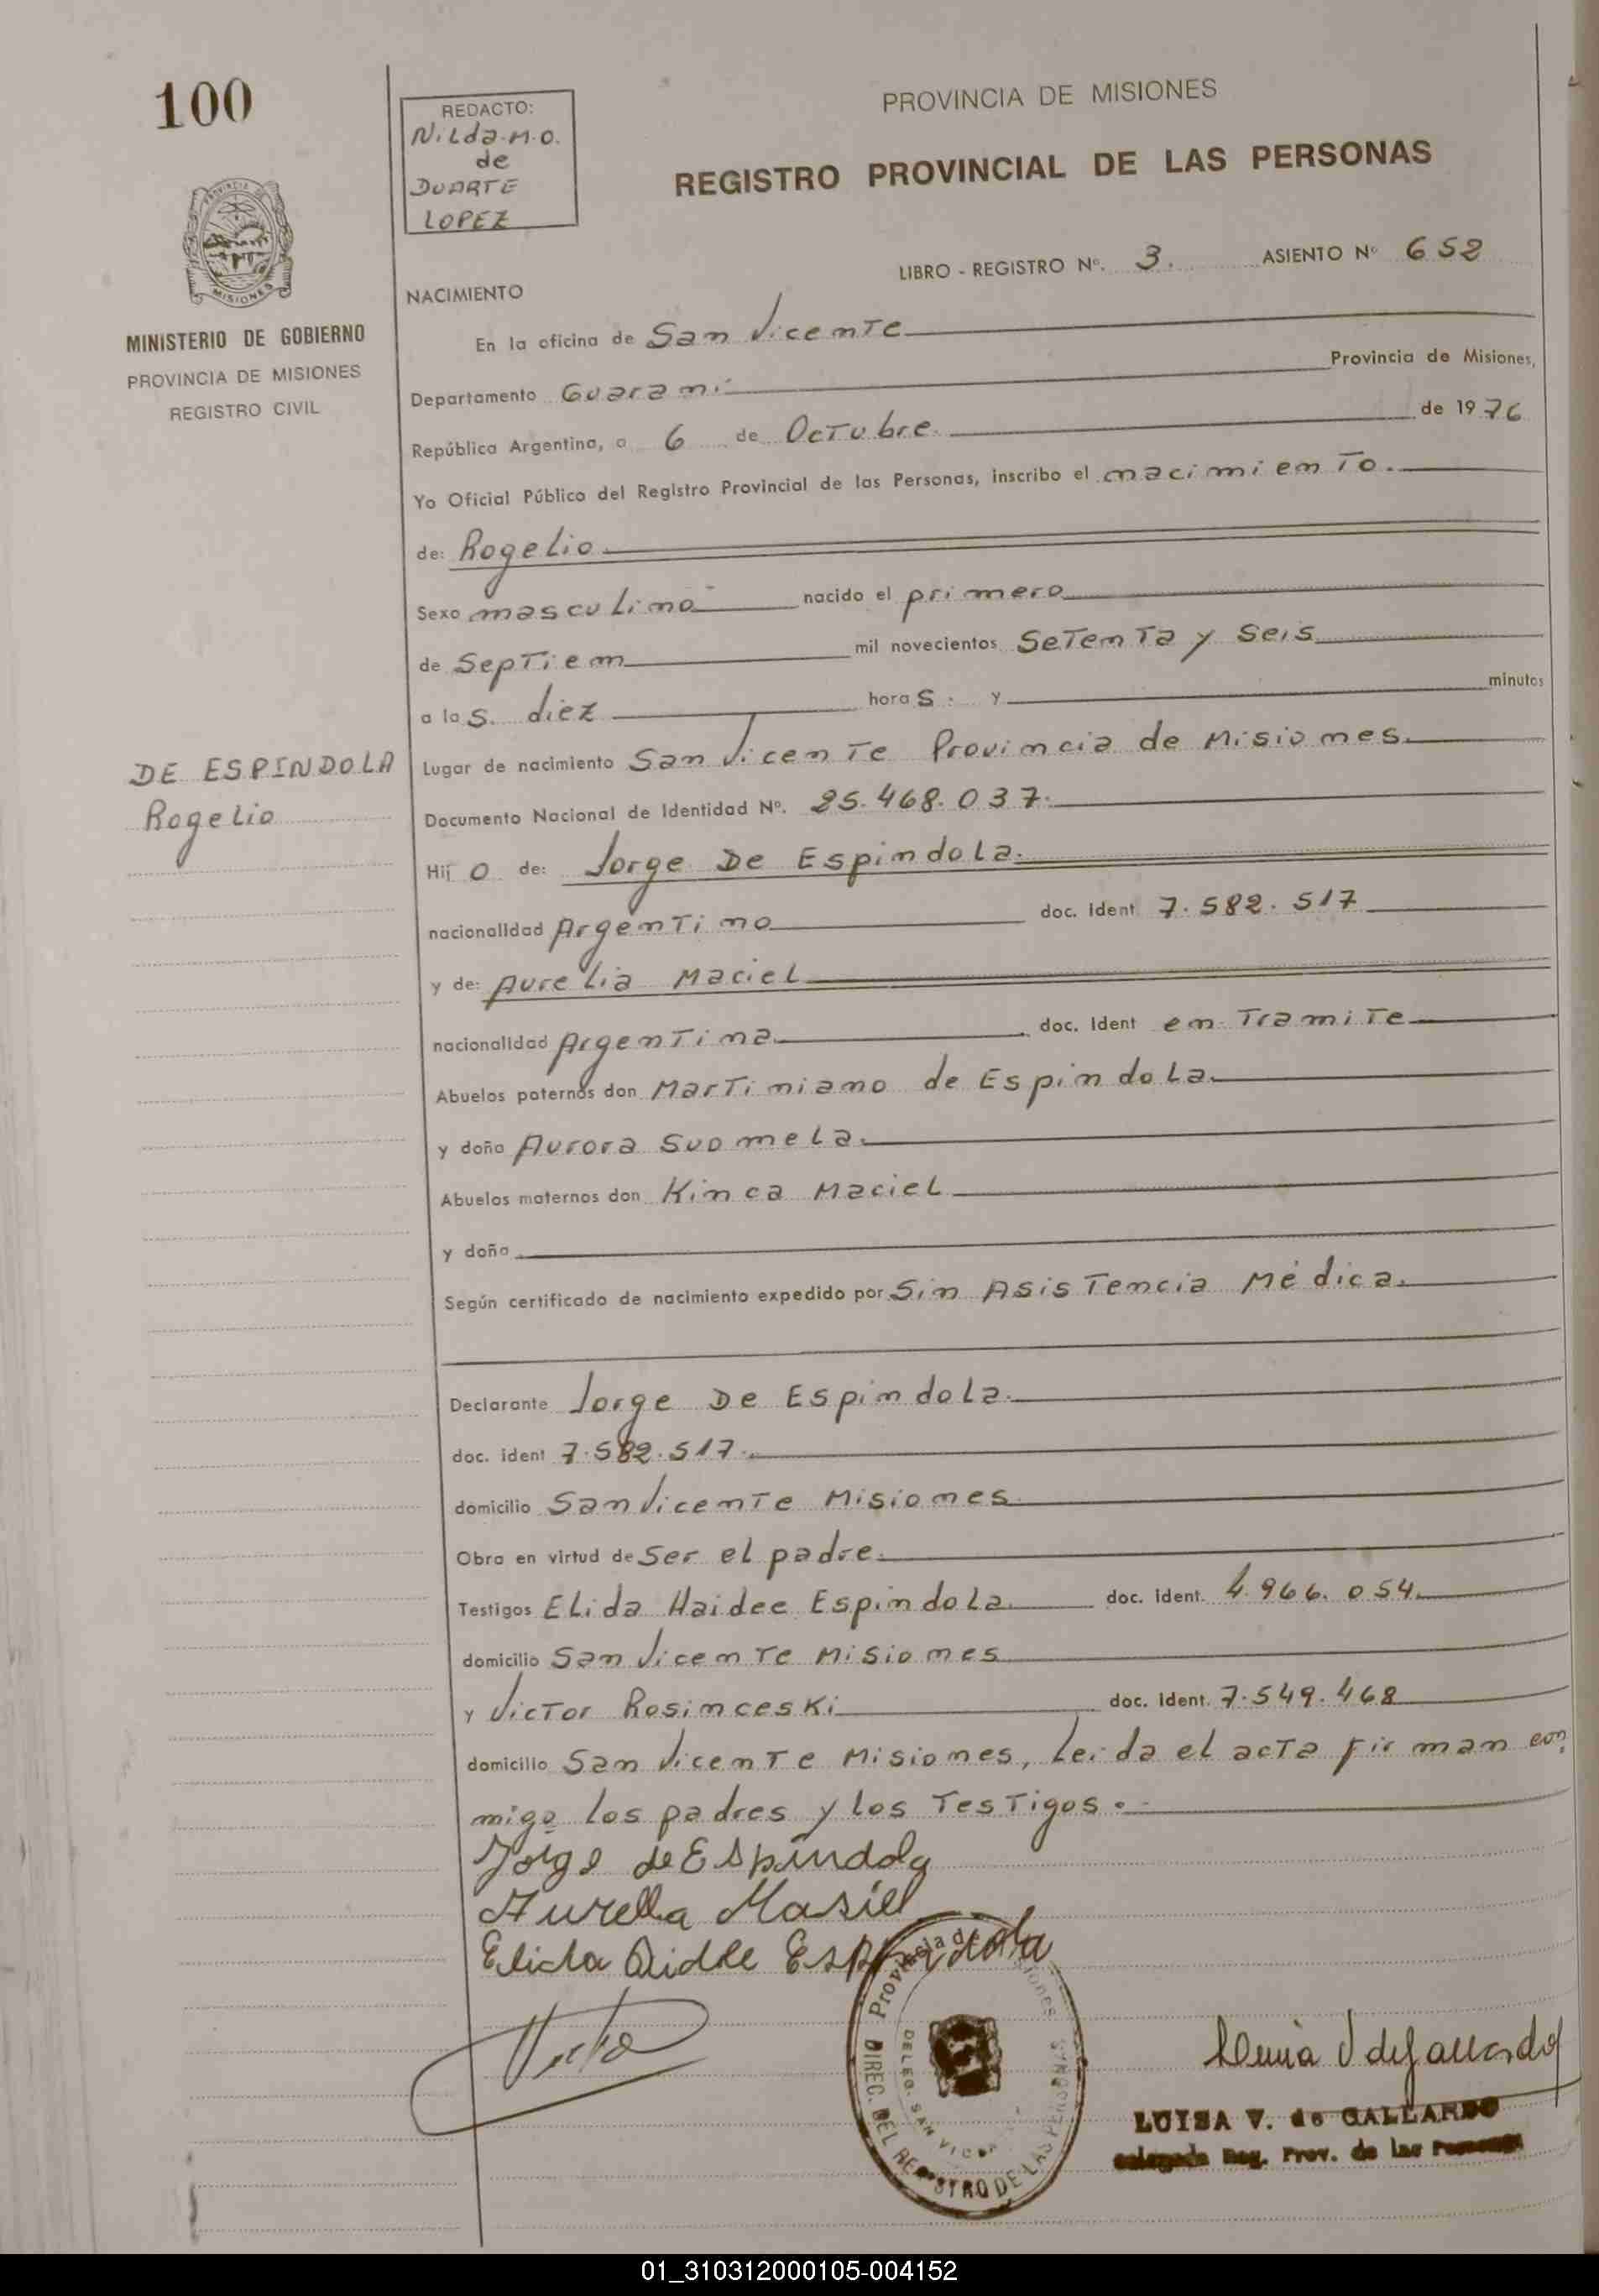 100
REDACTO:
Nilda.M.O.
de
DUARTE
LOPEZ
PROVINCIA DE MISIONES
REGISTRO PROVINCIAL DE LAS PERSONAS
MISIONES
MINISTERIO DE GOBIERNO
PROVINCIA DE MISIONES
REGISTRO CIVIL
LIBRO - REGISTRO Nº. 3. ASIENTO Nº 652
NACIMIENTO
En la oficina de San Vicente
Departamento Guaraní Provincia de Misiones,
República Argentina, a 6 de Octubre de 1976
Yo Oficial Público del Registro Provincial de las Personas, inscribo el nacimiento.
de: Rogelio
Sexo masculino nacido el primero
de Septiem mil novecientos Setenta y Seis
a las. diez horas. y minutos
DE ESPINDOLA
Rogelio
Lugar de nacimiento San Vicente Provincia de Misiones.
Documento Nacional de Identidad Nº. 25.468.037.
Hijo de: Jorge De Espindola.
nacionalidad Argentino doc. ident 7.582.517
y de: Aurelia Maciel
nacionalidad Argentina doc. Ident en Tramite
Abuelos paternos don Martiniano de Espindola.
y doña Aurora Suomela.
Abuelos maternos don Kinca Maciel
y doña
Según certificado de nacimiento expedido por Sin Asistencia Médica.
Declarante Jorge De Espindola.
doc. ident 7.582.517.
domicilio San Vicente Misiones
Obra en virtud de Ser el padre.
Testigos Elida Haidee Espindola. doc. ident. 4.966.054.
domicilio San Vicente Misiones
y Victor Rosinceski doc. Ident. 7.549.468
domicilio San Vicente Misiones, Leida el acta firman con
migo los padres y los Testigos.
Jorge de Espindola
Aurella Masiel
Elida Espindola
Provincia de Misiones
DIREC. DEL REGISTRO DE LAS PERSONAS
DELEG. SAN VICENTE
LUISA V. de GALLARDO
Delegada Reg. Prov. de las Personas
01_310312000105-004152